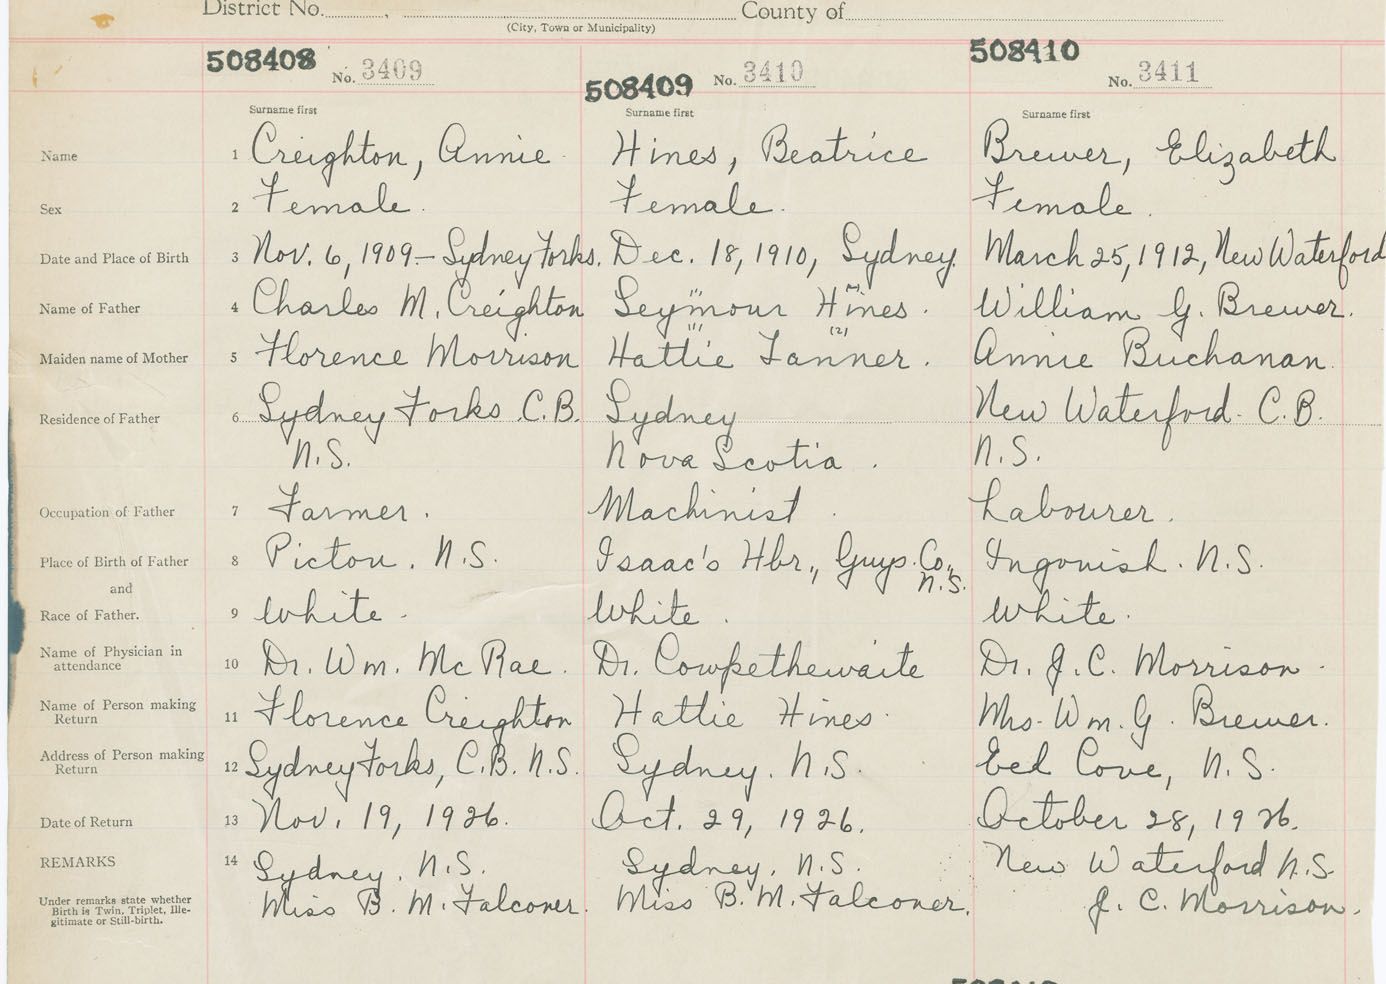 District No. , County of
(City, Town or Municipality)
508408 No. 3409 508409 No. 3410 508410 No. 3411
Surname first Surname first Surname first
Name 1 Creighton, Annie Hines, Beatrice Brewer, Elizabeth
Sex 2 Female. Female. Female.
Date and Place of Birth 3 Nov. 6, 1909 - Sydney Forks. Dec. 18, 1910, Sydney. March 25, 1912, New Waterford
Name of Father 4 Charles M. Creighton Seymour Hines. William G. Brewer.
Maiden name of Mother 5 Florence Morrison Hattie (1) Tanner (2). Annie Buchanan.
Residence of Father 6 Sydney Forks C.B. Sydney New Waterford - C.B.
N.S. Nova Scotia. N.S.
Occupation of Father 7 Farmer. Machinist. Labourer.
Place of Birth of Father 8 Pictou. N.S. Isaac's Hbr., Guys. Co., N.S. Ingonish. N.S.
and
Race of Father. 9 White. White. White.
Name of Physician in attendance 10 Dr. Wm. McRae. Dr. Cowpethewaite Dr. J. C. Morrison.
Name of Person making Return 11 Florence Creighton Hattie Hines. Mrs. Wm. G. Brewer.
Address of Person making Return 12 Sydney Forks, C.B. N.S. Sydney. N.S. Eel Cove, N.S.
Date of Return 13 Nov. 19, 1926. Oct. 29, 1926. October 28, 1926.
REMARKS 14 Sydney. N.S. Sydney. N.S. New Waterford N.S.
Under remarks state whether Birth is Twin, Triplet, Ille-gitimate or Still-birth. Miss B. M. Falconer. Miss B. M. Falconer. J. C. Morrison.